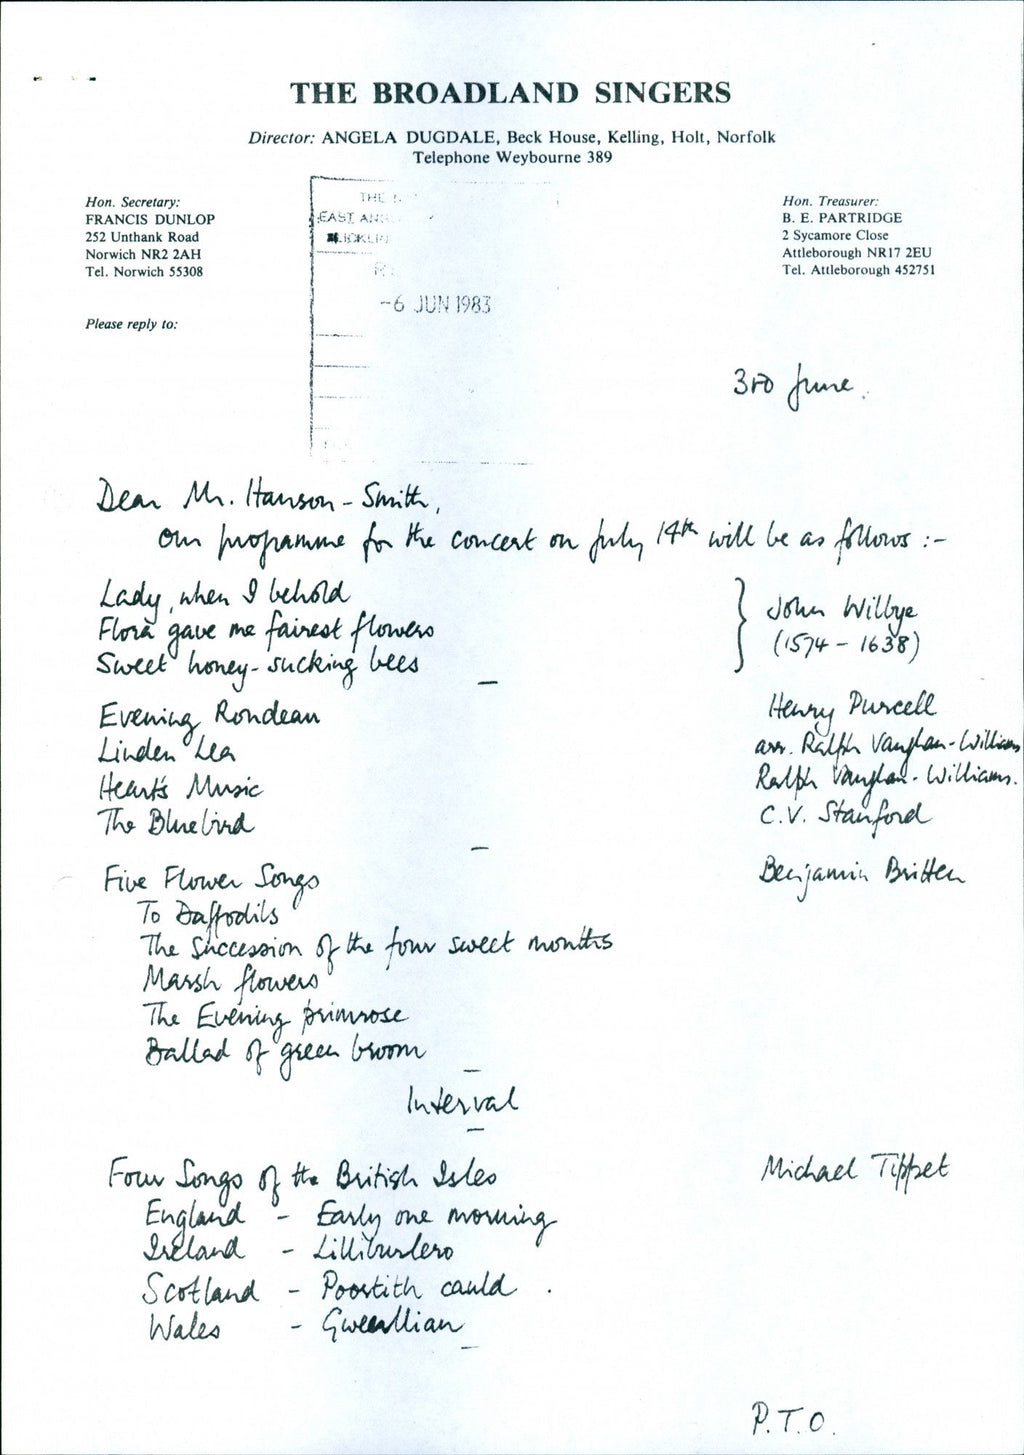 THE BROADLAND SINGERS
Director: ANGELA DUGDALE, Beck House, Kelling, Holt, Norfolk
Telephone Weybourne 389
Hon. Secretary:
FRANCIS DUNLOP
252 Unthank Road
Norwich NR2 2AH
Tel. Norwich 55308
Please reply to:
THE
EAST
-6 JUN 1983
Hon. Treasurer:
B. E. PARTRIDGE
2 Sycamore Close
Attleborough NR17 2EU
Tel. Attleborough 452751
3rd June.
Dear Mr. Hanson-Smith,
Our programme for the concert on July 14th will be as follows :-
Lady, when I behold
Flora gave me fairest flowers
Sweet honey-sucking bees
John Wilbye
(1574 - 1638)
Evening Rondeau Henry Purcell
Linden Lea arr. Ralph Vaughan-Williams
Heart's Music Ralph Vaughan-Williams.
The Bluebird C.V. Stanford
Five Flower Songs Benjamin Britten
To Daffodils
The Succession of the four sweet months
Marsh flowers
The Evening primrose
Ballad of green broom
Interval
Four Songs of the British Isles Michael Tippet
England - Early one morning
Ireland - Lilliburlero
Scotland - Poortith cauld
Wales - Gweallian
P.T.O.